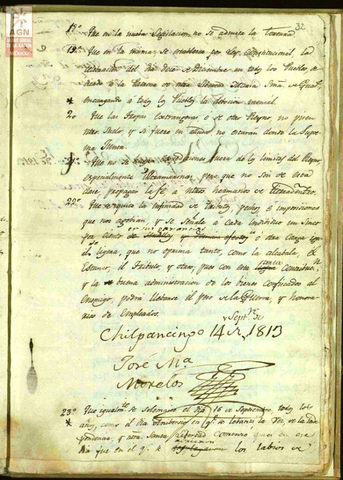 AGN
32
18º Que en la nueva legislacion no se admita la Tortura
19º Que en la misma se establezca por ley Constitucional la
celebracion del dia doce de Diciembre en todos los Pueblos, de
dicada á la Patrona de nra Libertad Maria Sma. de Guad.
* encargando á todos los Pueblos la devocion mensal
20 Que las tropas extrangeras ó de otro Reyno, no pisen
nro Suelo, y si fuere en ayuda no estarán donde la Supre
ma Junta
fuera de los limites del Reyno,
especialmente Ultramarinas, pero que no son de esta
clase, propagar la fé a nros hermanos de tierradentro
22º Que se quite la infinidad de tributos, pechos é imposiciones
que nos agobian, y se señale á cada individuo un cinco
por ciento ó otra carga
ligera, que no oprima tanto, como la alcabala, el
Estanco, el Tributo, y otros, pues con esta
y la buena administracion de los bienes confiscados al
Enemigo, podrá llebarse el peso de la Guerra, y honora
rios de Empleados.
Chilpancingo 14 de Septe. de 1813
José Mª
Morelos
23º Que igualmte. se solemnice el dia 16 de Septiembre, todos los
* años, como el dia Aniversario en q. se lebantó la Voz de la Inde
pendencia, y nra Santa Libertad Comenzó, pues en ese
dia fue en el q. se los labios de